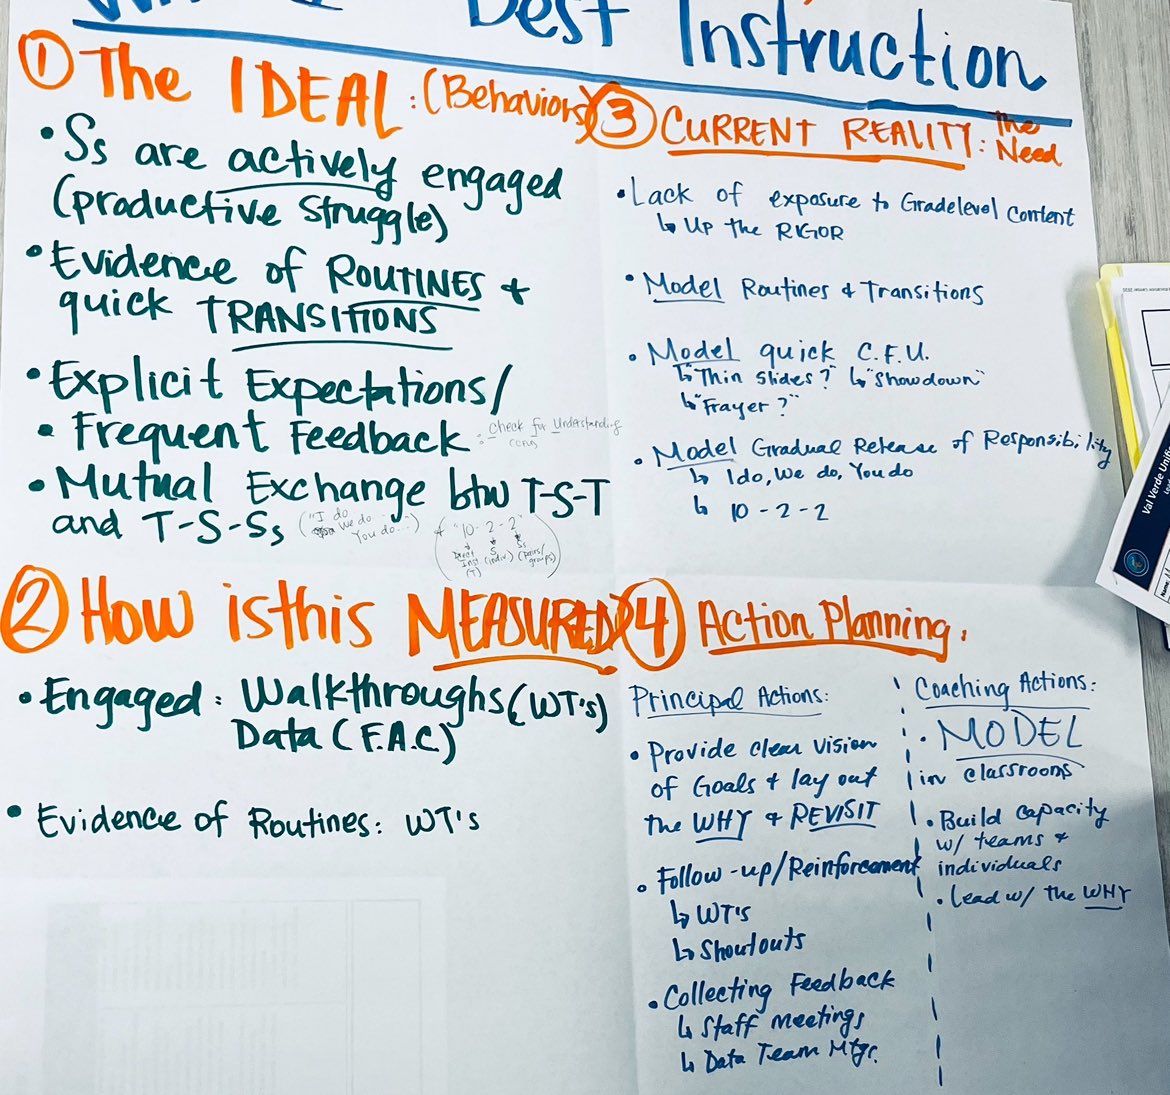 Best Instruction
① The IDEAL: (Behaviors)
• Ss are actively engaged
(productive struggle)
• Evidence of ROUTINES +
quick TRANSITIONS
• Explicit Expectations/
• Frequent Feedback : Check for Understanding
(CFUs)
• Mutual Exchange btw T-S-T
and T-S-Ss ("I do
We do...
You do...)
+ "10-2-2"
Direct S Ss
Inst (indiv) (pairs/
(T) groups)
② How is this MEASURED
• Engaged: Walkthroughs (WT's)
Data (F.A.C)
• Evidence of Routines: WT's
③ CURRENT REALITY: The
Need
• Lack of exposure to Gradelevel Content
↳ Up the RIGOR
• Model Routines & Transitions
• Model quick C.F.U.
↳ "Thin Slides?" ↳ "Showdown"
↳ "Frayer?"
• Model Gradual Release of Responsibility
↳ I do, We do, You do
↳ 10-2-2
④ Action Planning.
Principal Actions:
• Provide clear vision
of Goals & lay out
the WHY & REVISIT
• Follow-up/Reinforcement
↳ WT's
↳ Shoutouts
• Collecting Feedback
↳ Staff Meetings
↳ Data Team Mtgs.
Coaching Actions:
• MODEL
in classrooms
• Build capacity
w/ teams &
individuals
• Lead w/ the WHY
Val Verde Unifi